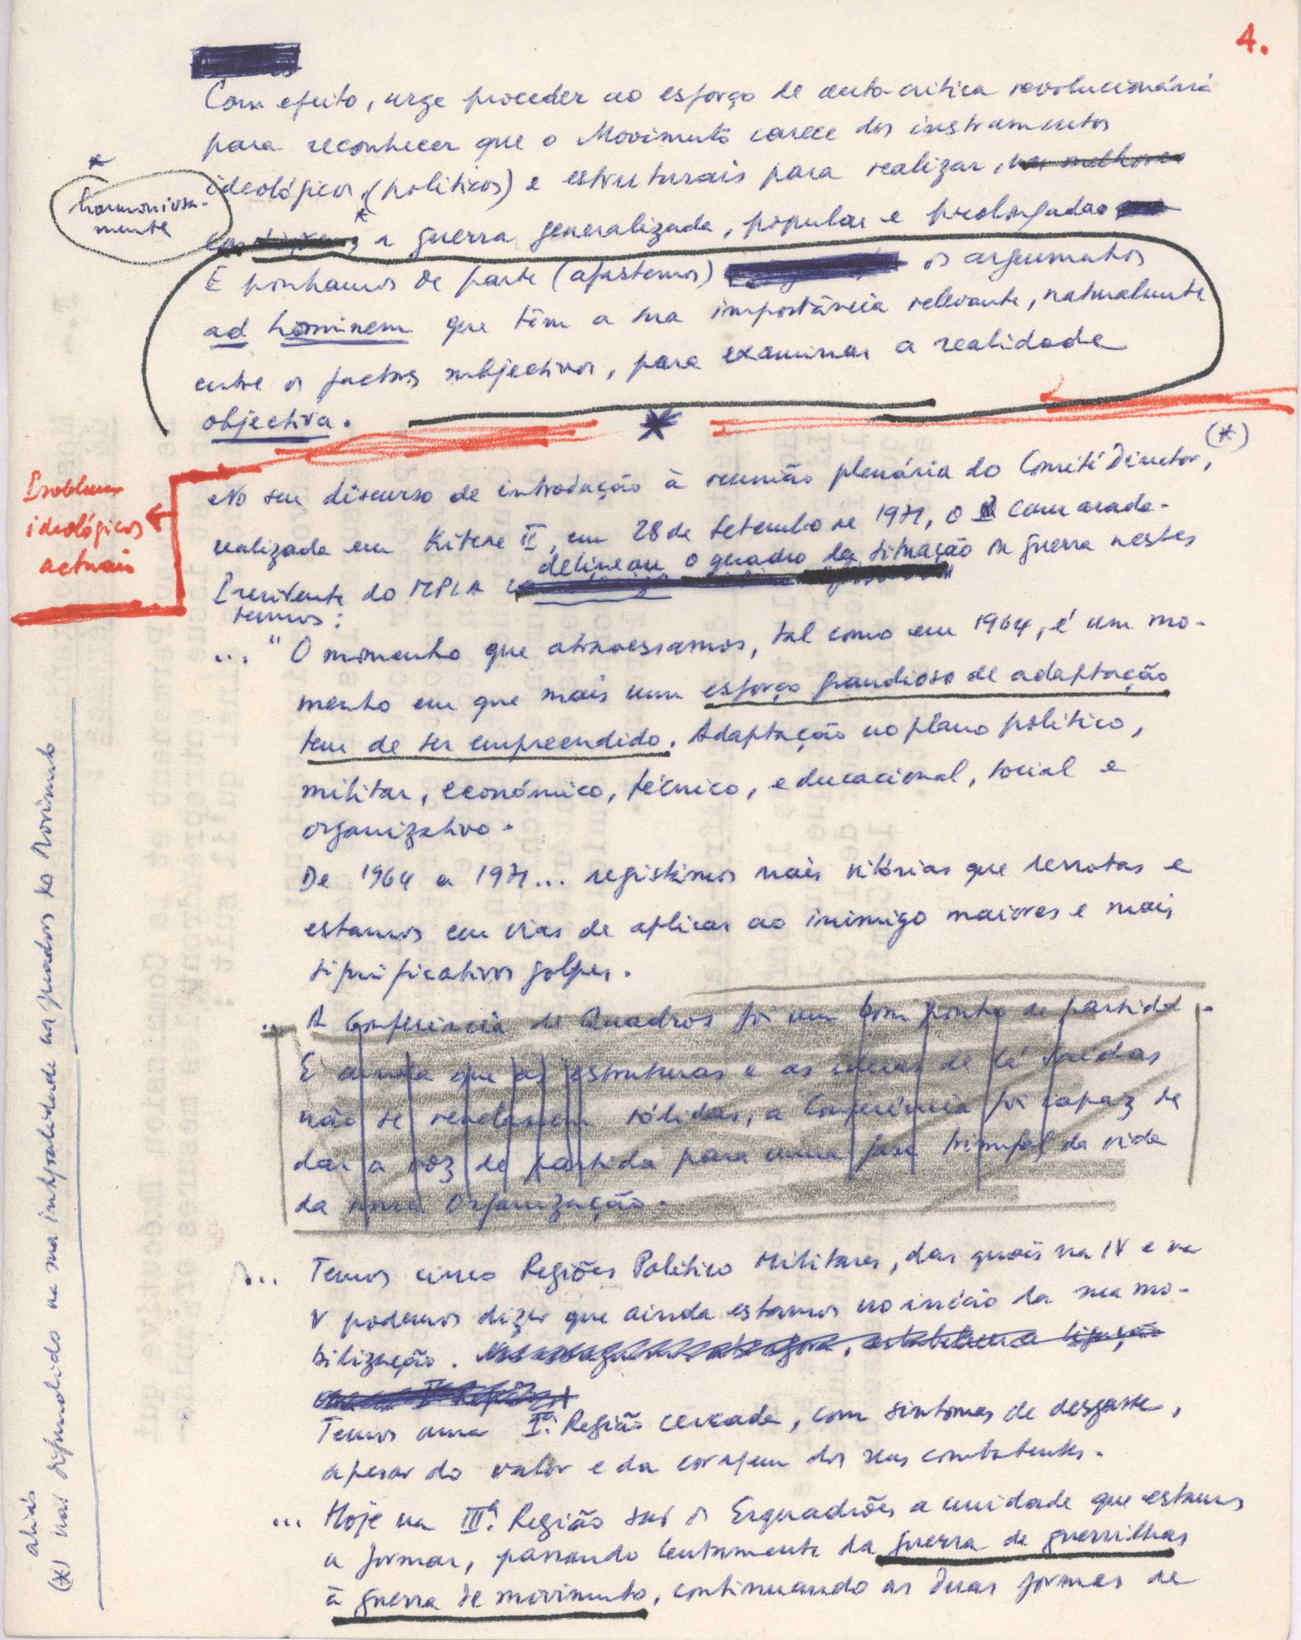 4.
Com efeito, urge proceder ao esforço de auto-critica revolucionária
para reconhecer que o Movimento carece dos instrumentos
ideológicos, (politicos) e estruturais para realizar, na melhor
*
harmoniosa-
mente
* a guerra generalizada, popular e prolongada
E ponhamos de parte (afastemos) os argumentos
ad hominem que têm a sua importância relevante, naturalmente
entre os factos subjectivos, para examinar a realidade
objectiva.
*
Problemas
ideológicos
actuais
No seu discurso de introdução à reunião plenária do Comité Director, (*)
realizada em Kitexe II, em 28 de Setembro de 1971, o camarada-
Presidente do MPLA delineou o quadro da situação da guerra nestes
termos:
... "O momento que atravessamos, tal como em 1964, é um mo-
mento em que mais um esforço grandioso de adaptação
tem de ser empreendido. Adaptação no plano politico,
militar, económico, técnico, educacional, social e
organizativo.
De 1964 a 1971... registámos mais vitórias que derrotas e
estamos em vias de aplicar ao inimigo maiores e mais
significativos golpes.
... A Conferência de Quadros foi um bom ponto de partida.
E ainda que as estruturas e as ideias de lá saídas
não se revelassem sólidas, a Conferência foi capaz de
dar a voz de partida para uma fase triunfal da vida
da nossa Organização.
... Temos cinco Regiões Politico Militares, das quais na IV e na
V podemos dizer que ainda estamos no inicio da sua mo-
bilização. estabelecer a ligação
I Região
Temos uma Iª. Região cercada, com sintomas de desgaste,
apesar do valor e da coragem dos seus combatentes.
... Hoje na IIIª. Região são os Esquadrões a unidade que estamos
a formar, passando lentamente da guerra de guerrilhas
à guerra de movimento, continuando as duas formas de
aliás
(*) não difundido na sua integralidade aos quadros do Movimento